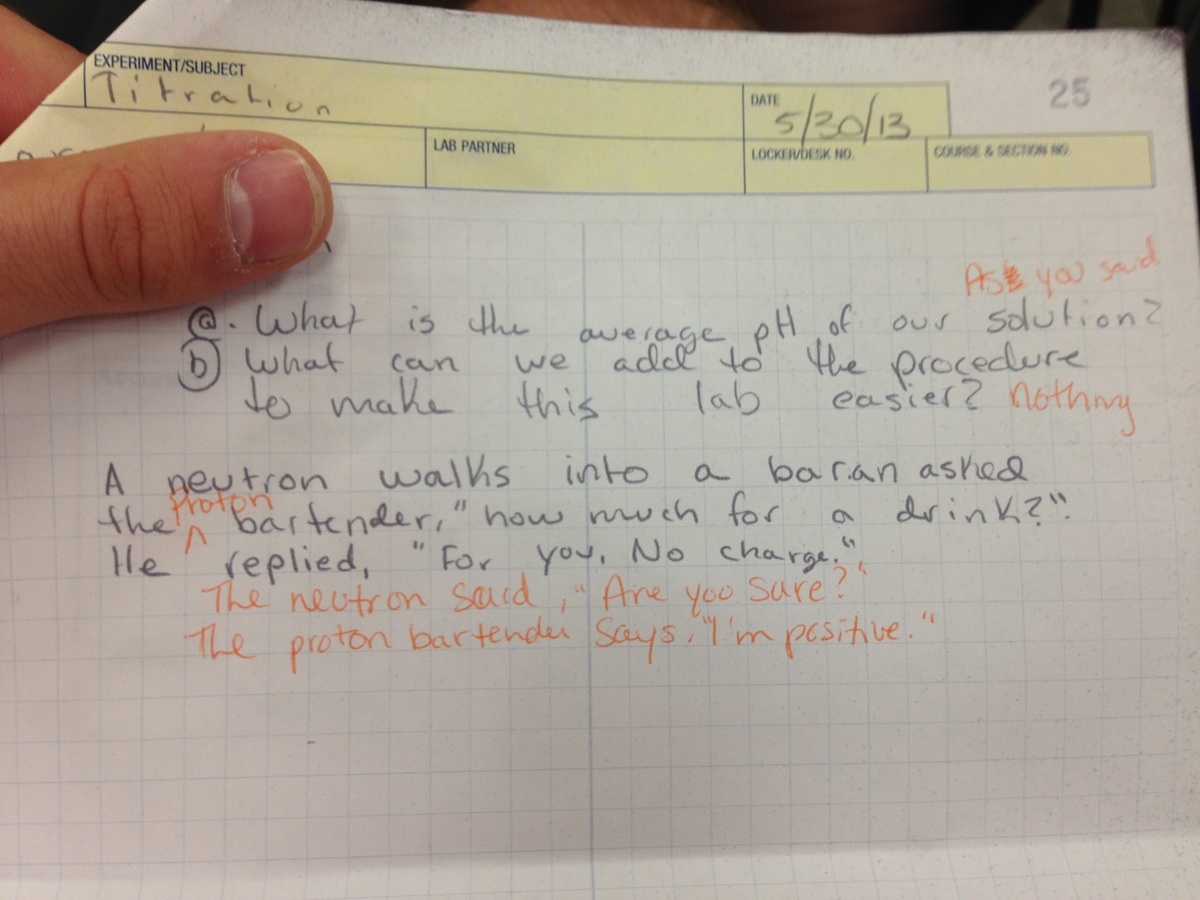 EXPERIMENT/SUBJECT
Titration
DATE
5/30/13
25
LAB PARTNER
LOCKER/DESK NO.
COURSE & SECTION NO.
As you said
a. What is the average pH of our solution?
b What can we add to the procedure
to make this lab easier? nothing
A neutron walks into a bar.an asked
proton
the ^ bartender, "how much for a drink?".
He replied, "For you. No charge."
The neutron said, "Are you sure?"
The proton bartender says. "I'm positive."